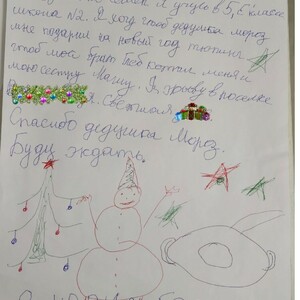 я учусь в 5,6 классе
школа №2. Я хочу чтоб дедушка мороз
мне подарил на новый год тюбинг
чтоб мой брат катал меня и
мою сестру Машу. Я живу в поселке
Светлая
Спасибо дедушка Мороз.
Буду ждать.